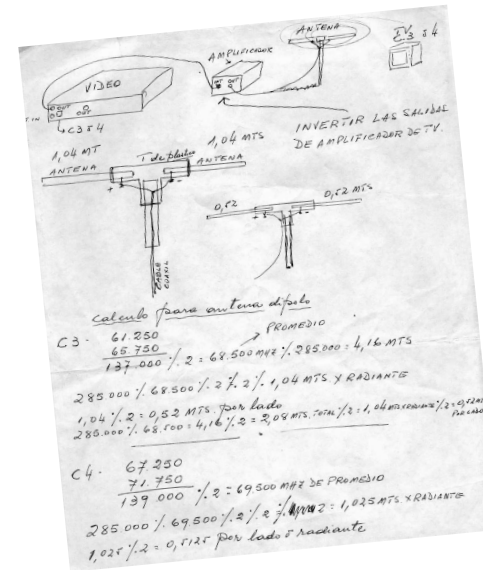 ANTENA
TV
C.3 ó 4
AMPLIFICADOR
INT OUT
VIDEO
OUT
IN
C3 ó 4
INVERTIR LAS SALIDAS
DE AMPLIFICADOR DE TV.
1,04 MT
T de plastico
1,04 MTS
ANTENA
ANTENA
+ -
0,52
0,52 MTS
+ -
CABLE
COAXIL
calculo para antena dipolo
PROMEDIO
C3. 61.250
65.750
137.000 % 2 = 68.500 MHZ % 285.000 = 4,16 MTS
285.000 % 68.500 % 2 % 2 % 1,04 MTS X RADIANTE
1,04 % 2 = 0,52 MTS. por lado
285.000 % 68.500 = 4,16 % 2 = 2,08 MTS. TOTAL % 2 = 1,04 MTS % 2 = 0,52 MTS
POR LADO
C4. 67.250
71.750
139.000 % 2 = 69.500 MHZ DE PROMEDIO
285.000 % 69.500 % 2 % 2 = 1,025 MTS X RADIANTE
1,025 % 2 = 0,5125 por lado ó radiante